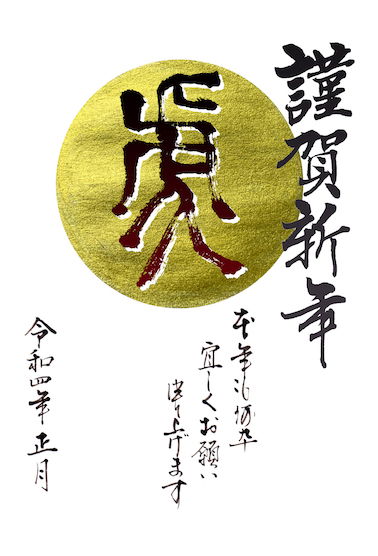 謹賀新年
寅
本年も何卒
宜しくお願い
申し上げます
令和四年 正月